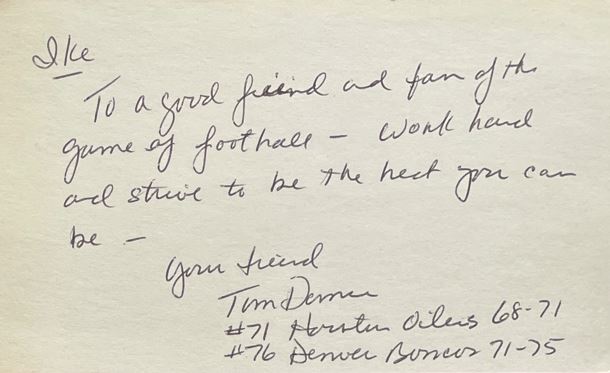 Ike
To a good friend and fan of the
game of football - Work hard
and strive to be the best you can
be -
Your friend
Tom Domres
#71 Houston Oilers 68-71
#76 Denver Broncos 71-75